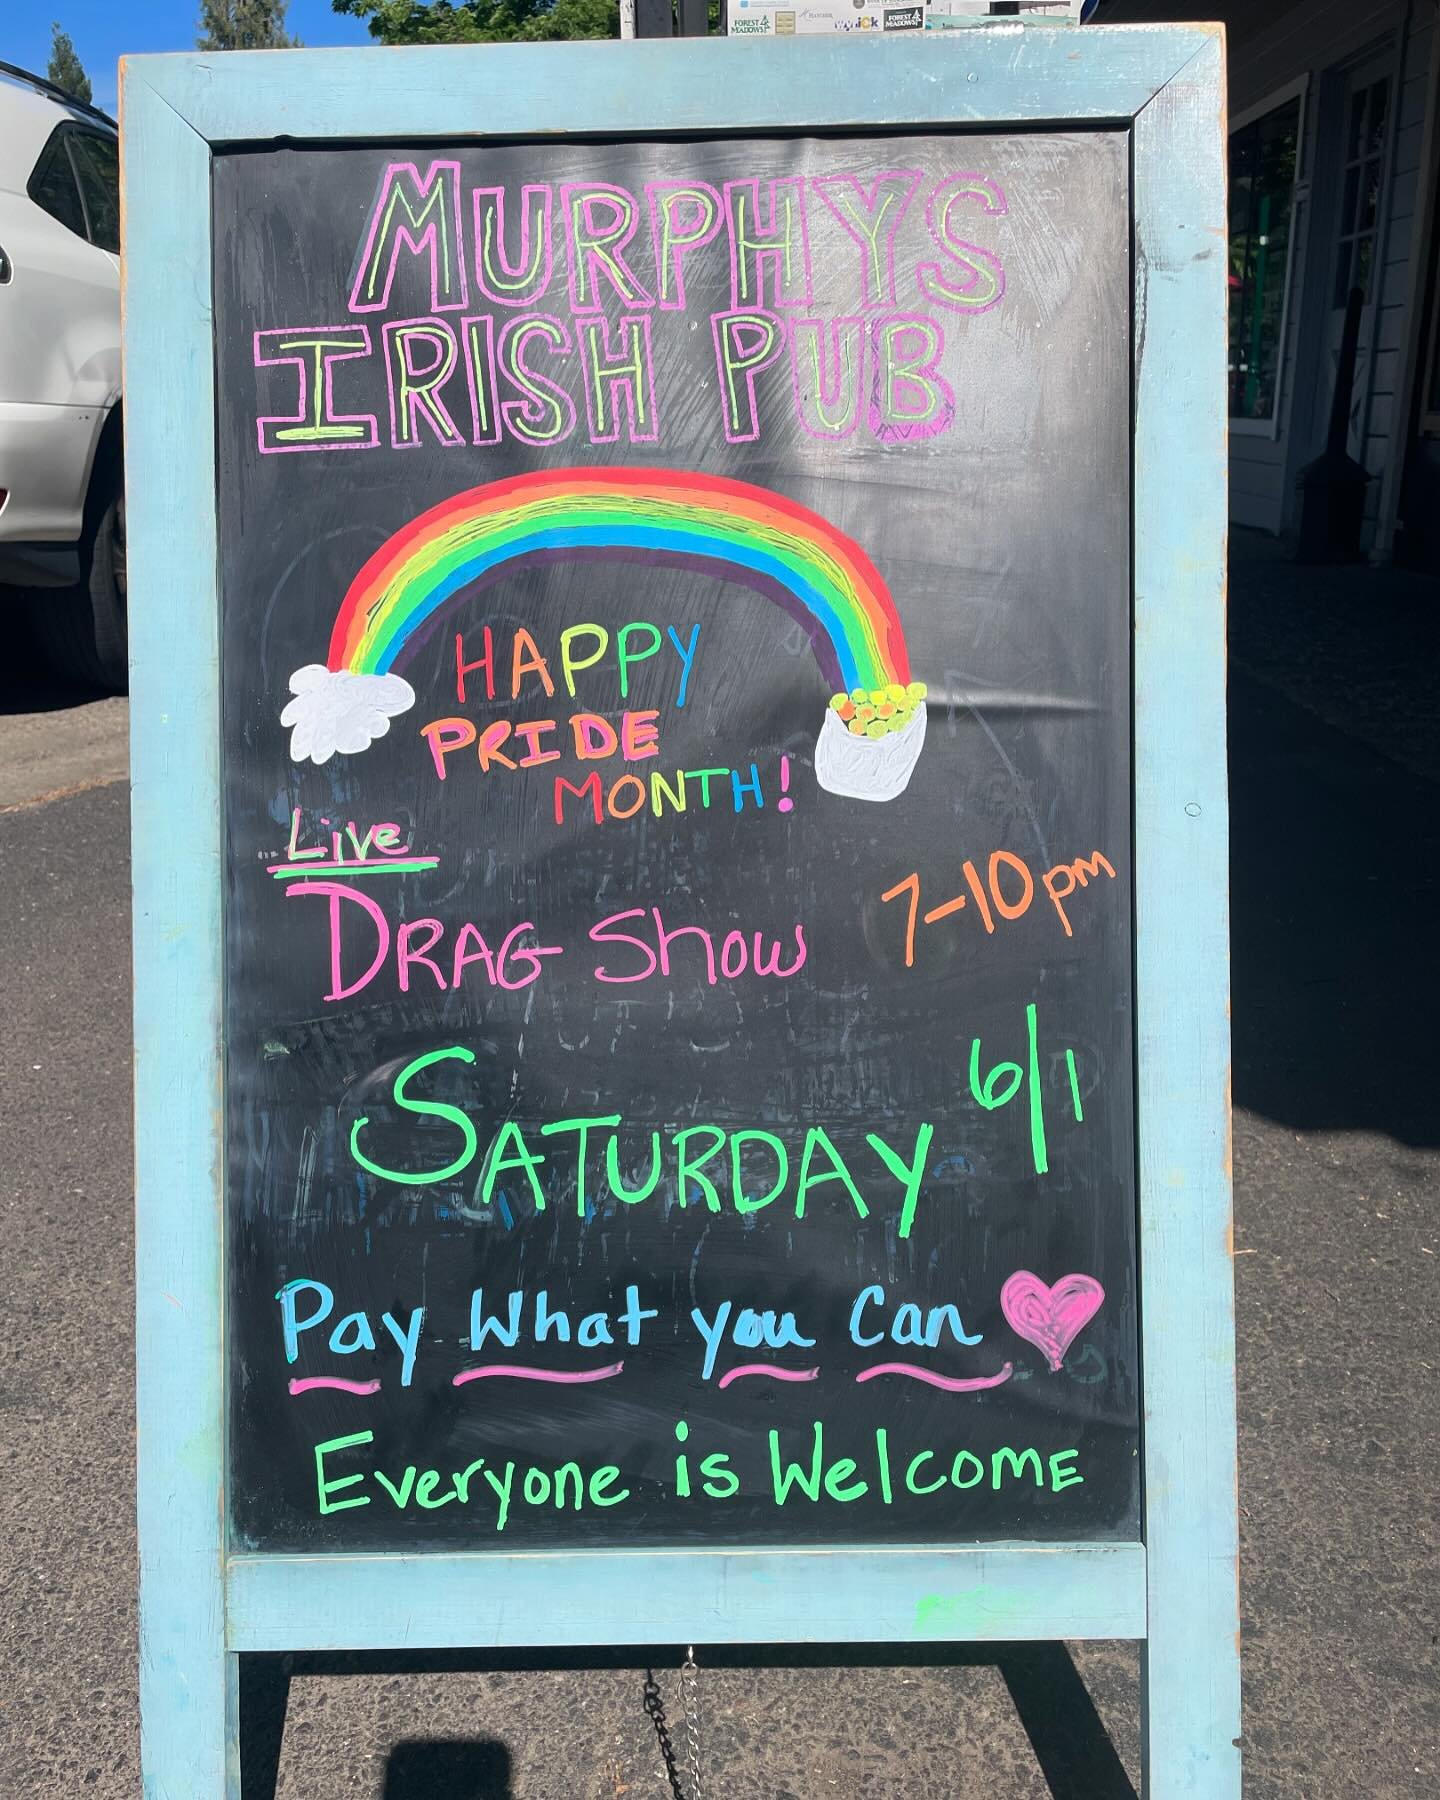 FOREST MEADOWS
FOREST MEADOWS
MURPHYS
IRISH PUB
HAPPY
PRIDE
MONTH!
Live
DRAG Show 7-10pm
SATURDAY 6/1
Pay What you Can
Everyone is Welcome